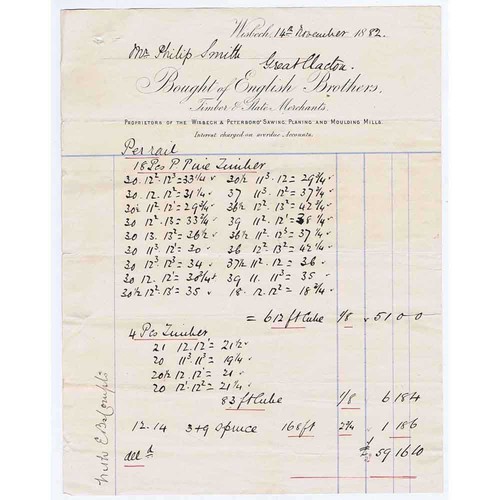 Wisbech, 14th November 1882.
Mr Philip Smith
Great Clacton.
Bought of English Brothers,
Timber & Slate Merchants.
PROPRIETORS OF THE WISBECH & PETERBORO' SAWING, PLANING AND MOULDING MILLS.
Interest charged on overdue Accounts.
Per rail
18 Pcs P Pine Timber
30 12² 12³ = 33¼ 30½ 11³ 12 = 29¾
30 12² 12 = 31¼ 37 11³ 12² = 37¾
30½ 11² 12 = 29¾ 36½ 13² 12² = 42¼
30 12² 13 = 33¾ 39 11² 12¹ = 38¼
30 13. 13² = 36½ 36½ 11² 12³ = 37¼
30 11³ 12² = 30 36 12² 13² = 42¼
30 12³ 12³ = 34 37½ 11² 12 = 36
30 12. 12¹ = 30¾ 39 11. 11³ = 35
30½ 12² 13² = 35 18. 12. 12² = 18¾
= 612 ft Cube 1/8 51 0 0
4 Pcs Timber
21 12. 12¹ = 21½
20 11³ 11³ = 19¼
20½ 12. 12¹ = 21
20 12¹ 12² = 21¼
83 ft Cube 1/8 6 18 4
12. 14 3 + 9 Spruce 168 ft 2¾ 1 18 6
59 16 10